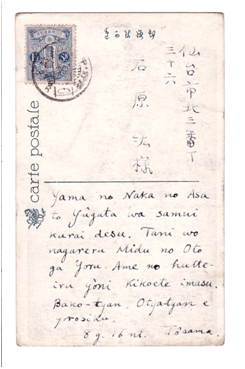 carte postale
仙台市北三番丁
三十六
石原 様
Yama no Naka no Asa
to Yûgata wa samui
kurai desu. Tani wo
nagareru Midu no Oto
ga Yoru Ame no hutte-
iru yôni kikoete imasu.
Bako-tyan. Otyatyan e
yrosiku.
8 g. 16 nt. Tôsama.